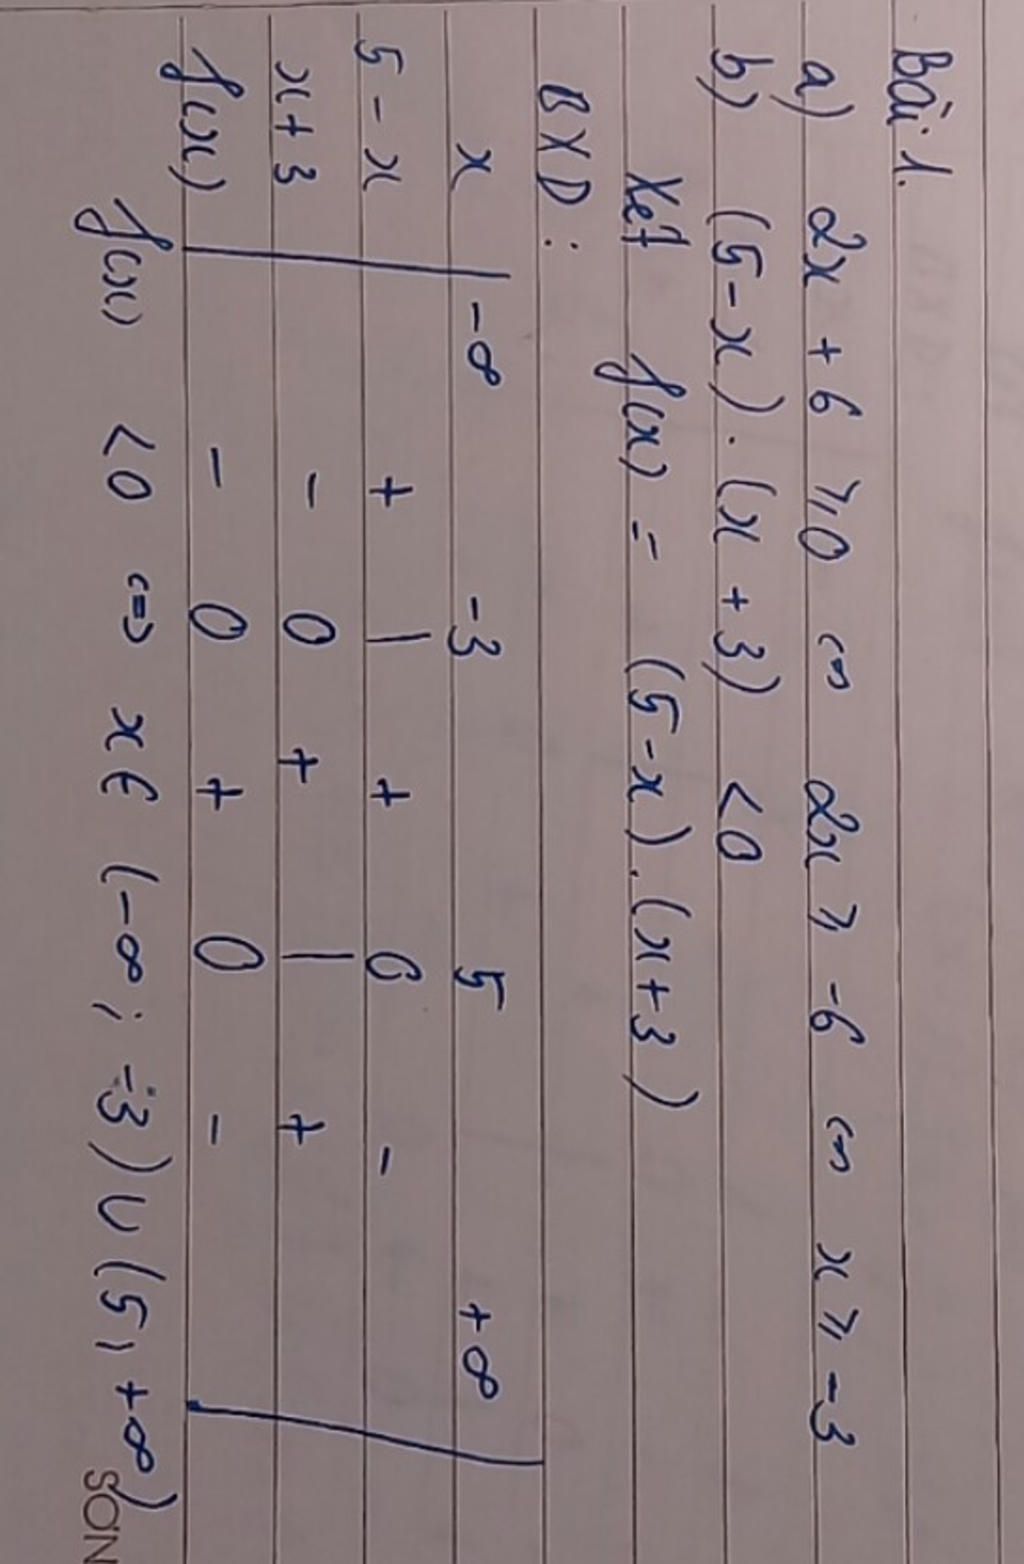 Bài 1.
a) 2x + 6 ⩾ 0 ⇔ 2x ⩾ -6 ⇔ x ⩾ -3
b) (5-x).(x+3) <0
Xét f(x) = (5-x).(x+3)
BXD:
x -∞ -3 5 +∞
5-x + | + 0 -
x+3 - 0 + | +
f(x) - 0 + 0 -
f(x) <0 ⇔ x∈ (-∞; -3) ∪ (5, +∞)
SON